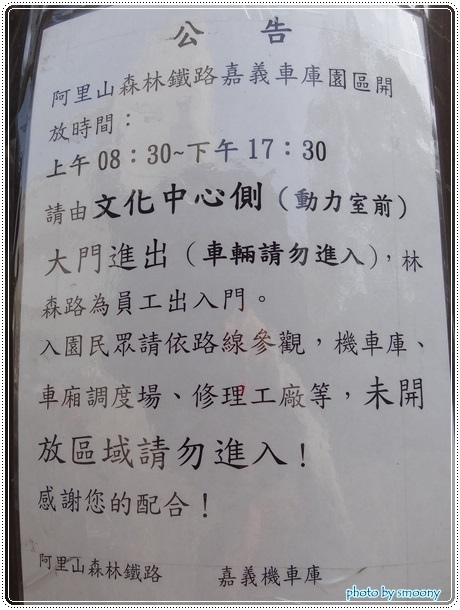 公 告
阿里山森林鐵路嘉義車庫園區開
放時間：
上午 08：30~下午 17：30
請由文化中心側（動力室前）
大門進出（車輛請勿進入），林
森路為員工出入門。
入園民眾請依路線參觀，機車庫、
車廂調度場、修理工廠等，未開
放區域請勿進入！
感謝您的配合！
阿里山森林鐵路 嘉義機車庫
photo by smoony